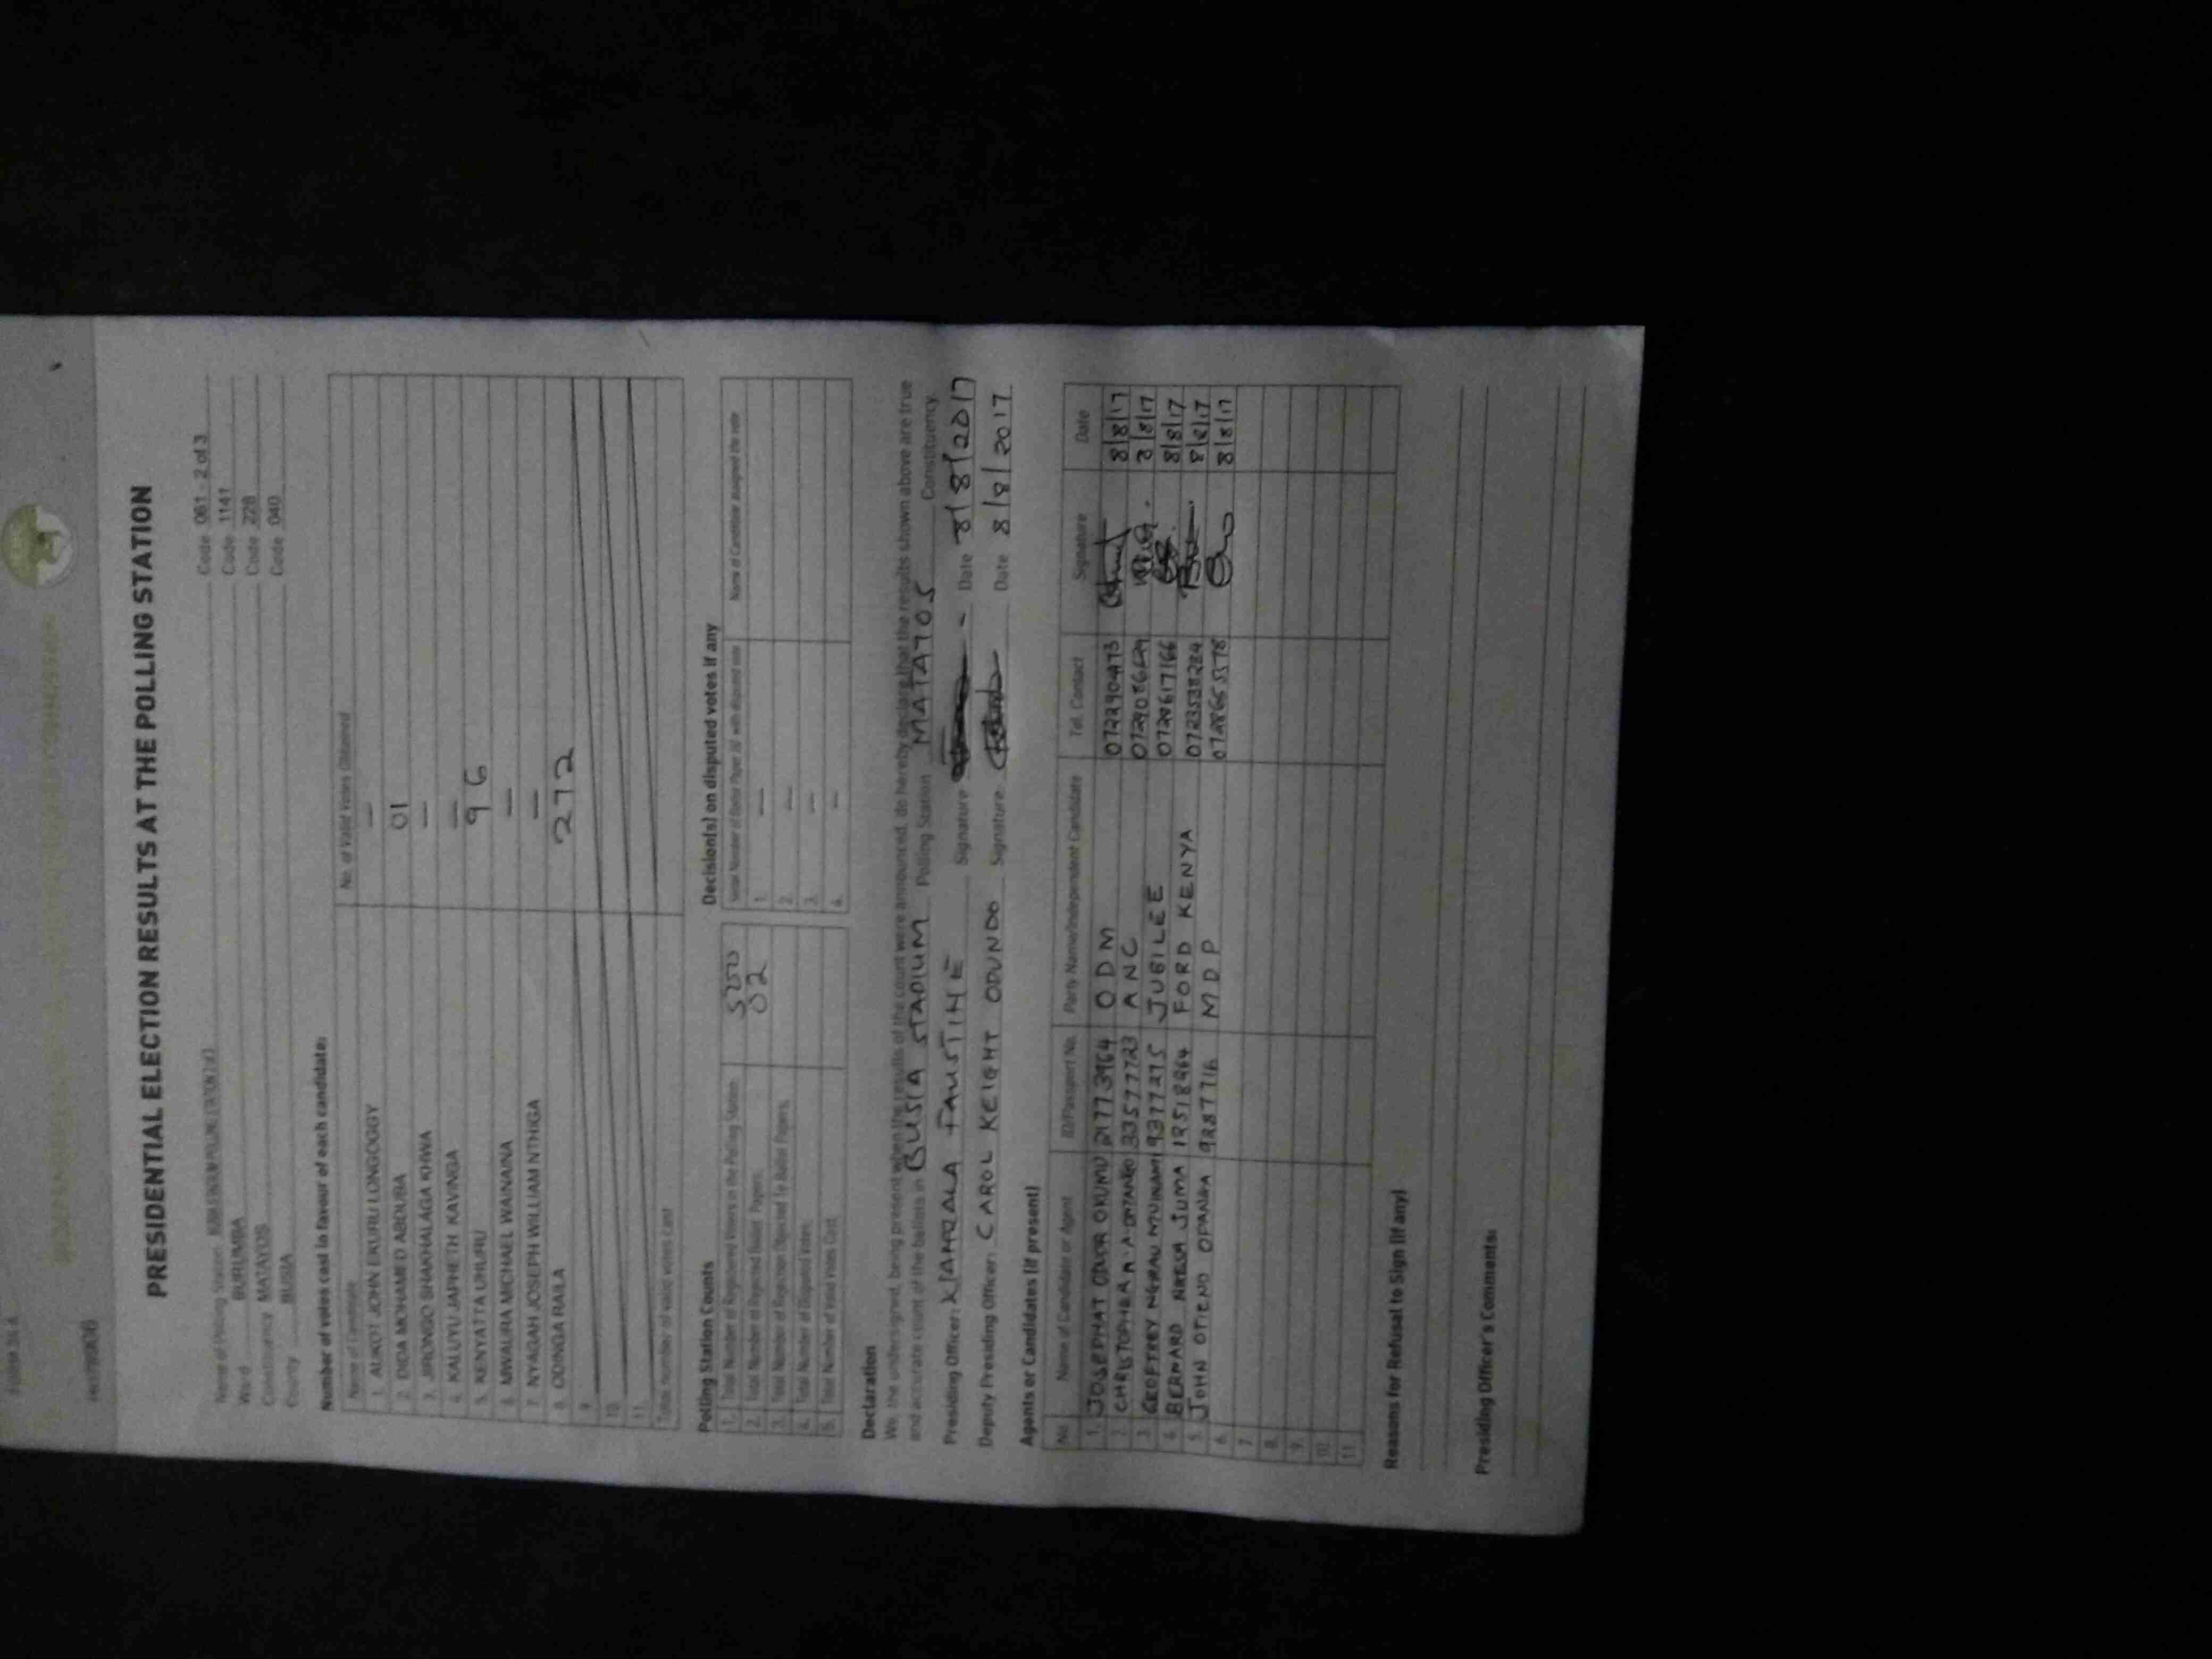 PRESIDENTIAL ELECTION RESULTS AT THE POLLING STATION
Name of Polling Station Code 061 - 2 of 3
Ward BURUMBA Code 1141
Constituency MATAYOS Code 228
County BUSIA Code 040
Number of votes cast in favour of each candidate:
Name of Candidate No. of Valid Votes Obtained
1. AUKOT JOHN EKURU LONGOGGY —
2. DIDA MOHAMED ABDUBA 01
3. JIRONGO SHAKHALAGA KHWA —
4. KALUYU JAPHETH KAVINGA —
5. KENYATTA UHURU 96
6. MWAURA MICHAEL WAINAINA —
7. NYAGAH JOSEPH WILLIAM NTHIGA —
8. ODINGA RAILA 272
9.
10.
11.
Total number of valid votes cast
Polling Station Counts
1. Total Number of Registered Voters in the Polling Station
2. Total Number of Rejected Ballot Papers 02
3. Total Number of Rejection Objected To Ballot Papers
4. Total Number of Disputed Votes
5. Total Number of Valid Votes Cast
Decision(s) on disputed votes if any
1. —
2. —
3. —
4. —
Declaration
We, the undersigned, being present when the results of the count were announced, do hereby declare that the results shown above are true
and accurate count of the ballots in BUSIA STADIUM Polling Station MATAYOS Constituency.
Presiding Officer: FAUSTINE Signature Date 8/8/2017
Deputy Presiding Officer: CAROL KEIGHT ODUNDO Signature: Date 8/8/2017
Agents or Candidates (if present)
No. Name of Candidate or Agent ID/Passport No. Party Name/Independent Candidate Tel. Contact Signature Date
1. JOSEPHAT ODUOR OKUMU 21773964 ODM 0722904473 8/8/17
2. CHRISTOPHER 33577723 ANC 8/8/17
3. GEOFFREY 9377275 JUBILEE 0720617166 8/8/17
4. BERNARD JUMA FORD KENYA 0723538284 8/8/17
5. JOHN OTIENO MDP 8/8/17
6.
7.
8.
9.
10.
11.
Reasons for Refusal to Sign (if any)
Presiding Officer's Comments: